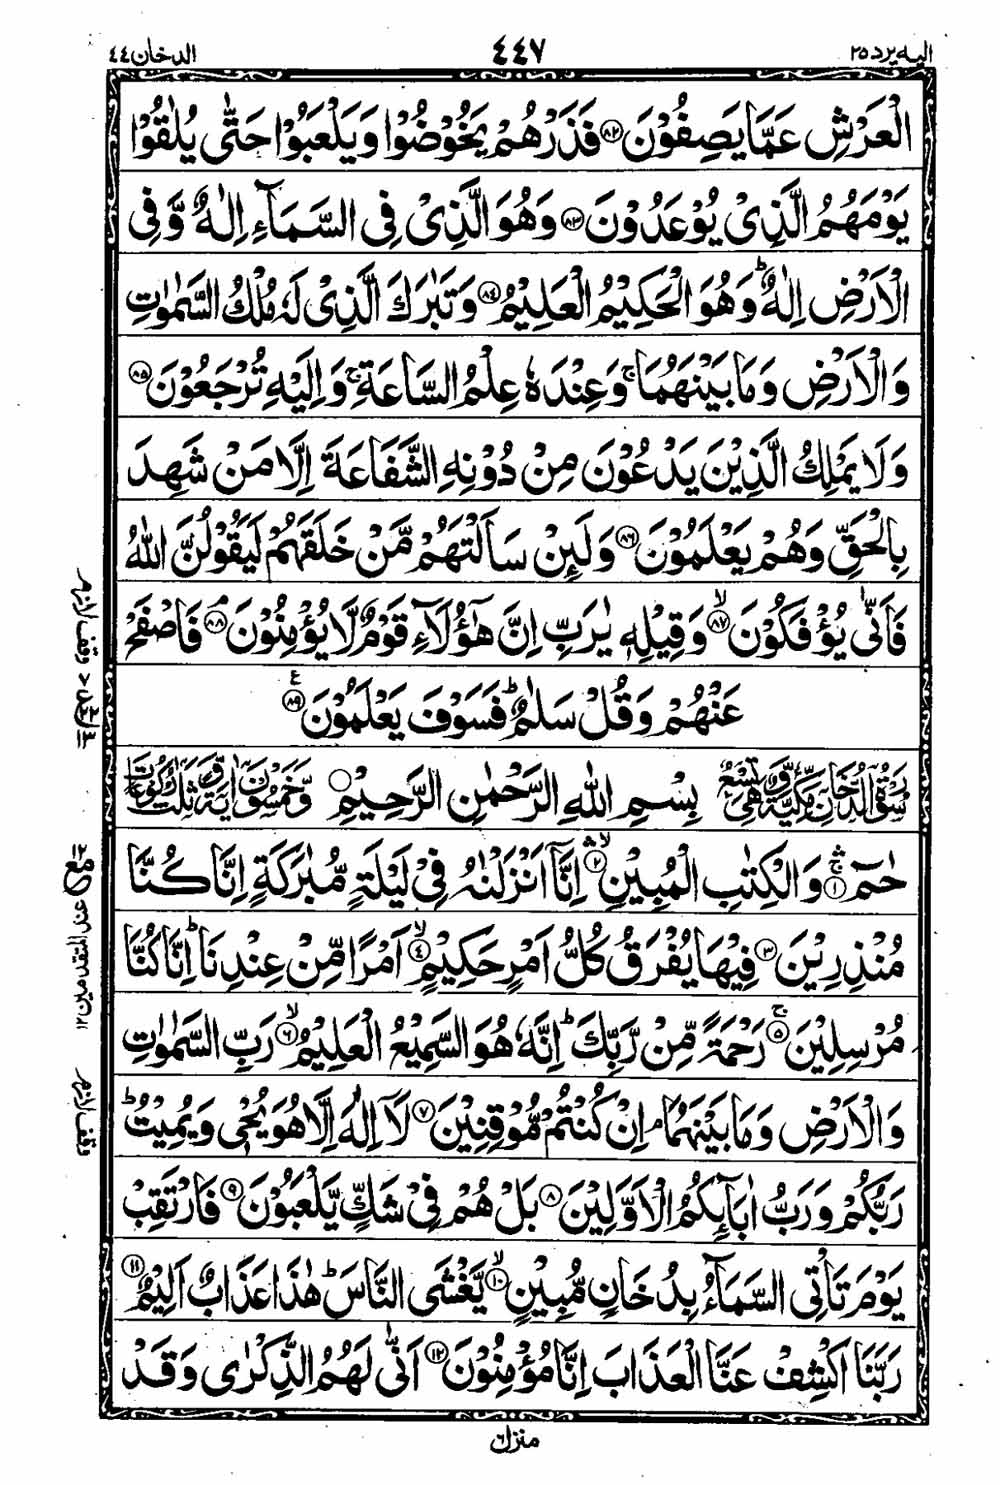 الدخان ٤٤ ٤٤٧ اليه يرد ٢٥
الْعَرْشِ عَمَّا يَصِفُوْنَ ﴿٨٢﴾ فَذَرْهُمْ يَخُوْضُوْا وَيَلْعَبُوْا حَتّٰى يُلٰقُوْا
يَوْمَهُمُ الَّذِىْ يُوْعَدُوْنَ ﴿٨٣﴾ وَهُوَ الَّذِىْ فِى السَّمَآءِ اِلٰهٌ وَّفِى
الْاَرْضِ اِلٰهٌ ؕ وَهُوَ الْحَكِيْمُ الْعَلِيْمُ ﴿٨٤﴾ وَتَبٰرَكَ الَّذِىْ لَهٗ مُلْكُ السَّمٰوٰتِ
وَالْاَرْضِ وَمَا بَيْنَهُمَا ۚ وَعِنْدَهٗ عِلْمُ السَّاعَةِ ۚ وَاِلَيْهِ تُرْجَعُوْنَ ﴿٨٥﴾
وَلَا يَمْلِكُ الَّذِيْنَ يَدْعُوْنَ مِنْ دُوْنِهِ الشَّفَاعَةَ اِلَّا مَنْ شَهِدَ
بِالْحَقِّ وَهُمْ يَعْلَمُوْنَ ﴿٨٦﴾ وَلَئِنْ سَاَلْتَهُمْ مَّنْ خَلَقَهُمْ لَيَقُوْلُنَّ اللّٰهُ
فَاَنّٰى يُؤْفَكُوْنَ ۙ﴿٨٧﴾ وَقِيْلِهٖ يٰرَبِّ اِنَّ هٰٓؤُلَآءِ قَوْمٌ لَّا يُؤْمِنُوْنَ ۘ﴿٨٨﴾ فَاصْفَحْ
عَنْهُمْ وَقُلْ سَلٰمٌ ؕ فَسَوْفَ يَعْلَمُوْنَ ﴿٨٩﴾ ع
سُوْرَةُ الدُّخَانِ مَكِّيَّةٌ وَّهِىَ تِسْعٌ بِسْمِ اللّٰهِ الرَّحْمٰنِ الرَّحِيْمِ وَّخَمْسُوْنَ اٰيَةً وَّثَلٰثُ رُكُوْعَاتٍ
حٰمٓ ۚ﴿١﴾ وَالْكِتٰبِ الْمُبِيْنِ ۙ﴿٢﴾ اِنَّآ اَنْزَلْنٰهُ فِىْ لَيْلَةٍ مُّبٰرَكَةٍ اِنَّا كُنَّا
مُنْذِرِيْنَ ﴿٣﴾ فِيْهَا يُفْرَقُ كُلُّ اَمْرٍ حَكِيْمٍ ۙ﴿٤﴾ اَمْرًا مِّنْ عِنْدِنَا ؕ اِنَّا كُنَّا
مُرْسِلِيْنَ ۚ﴿٥﴾ رَحْمَةً مِّنْ رَّبِّكَ ؕ اِنَّهٗ هُوَ السَّمِيْعُ الْعَلِيْمُ ۙ﴿٦﴾ رَبِّ السَّمٰوٰتِ
وَالْاَرْضِ وَمَا بَيْنَهُمَا ۘ اِنْ كُنْتُمْ مُّوْقِنِيْنَ ﴿٧﴾ لَآ اِلٰهَ اِلَّا هُوَ يُحْىٖ وَيُمِيْتُ ؕ
رَبُّكُمْ وَرَبُّ اٰبَآئِكُمُ الْاَوَّلِيْنَ ﴿٨﴾ بَلْ هُمْ فِىْ شَكٍّ يَّلْعَبُوْنَ ﴿٩﴾ فَارْتَقِبْ
يَوْمَ تَاْتِى السَّمَآءُ بِدُخَانٍ مُّبِيْنٍ ۙ﴿١٠﴾ يَّغْشَى النَّاسَ ؕ هٰذَا عَذَابٌ اَلِيْمٌ ﴿١١﴾
رَبَّنَا اكْشِفْ عَنَّا الْعَذَابَ اِنَّا مُؤْمِنُوْنَ ﴿١٢﴾ اَنّٰى لَهُمُ الذِّكْرٰى وَقَدْ
منزل ٦
وقف لازم
عند المتقدمين ١٢
وقف لازم